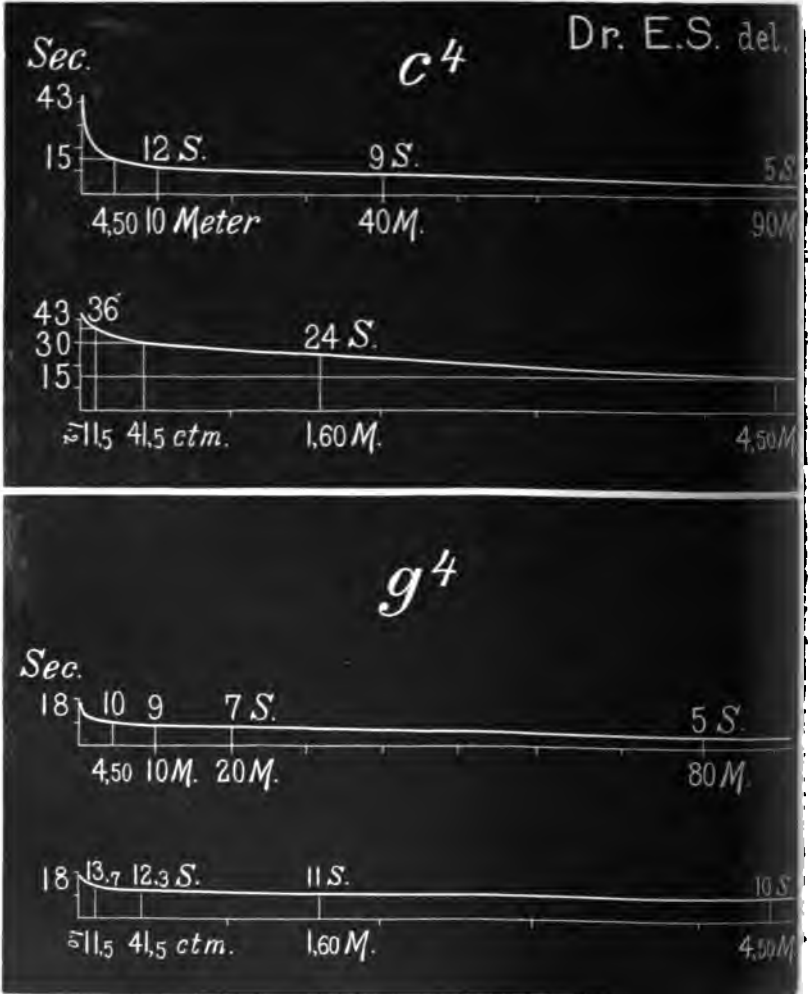 Dr. E.S. del.
c⁴
Sec.
43
12 S. 9 S. 5 S
15
4,50 10 Meter 40M. 90M
43 36
24 S.
30
15
11,5 41,5 ctm. 1,60 M. 4,50M
g⁴
Sec.
18 10 9 7 S. 5 S.
4,50 10M. 20M. 80M.
18 13.7 12.3 S. 11 S. 10 S
11,5 41,5 ctm. 1,60 M. 4,50M